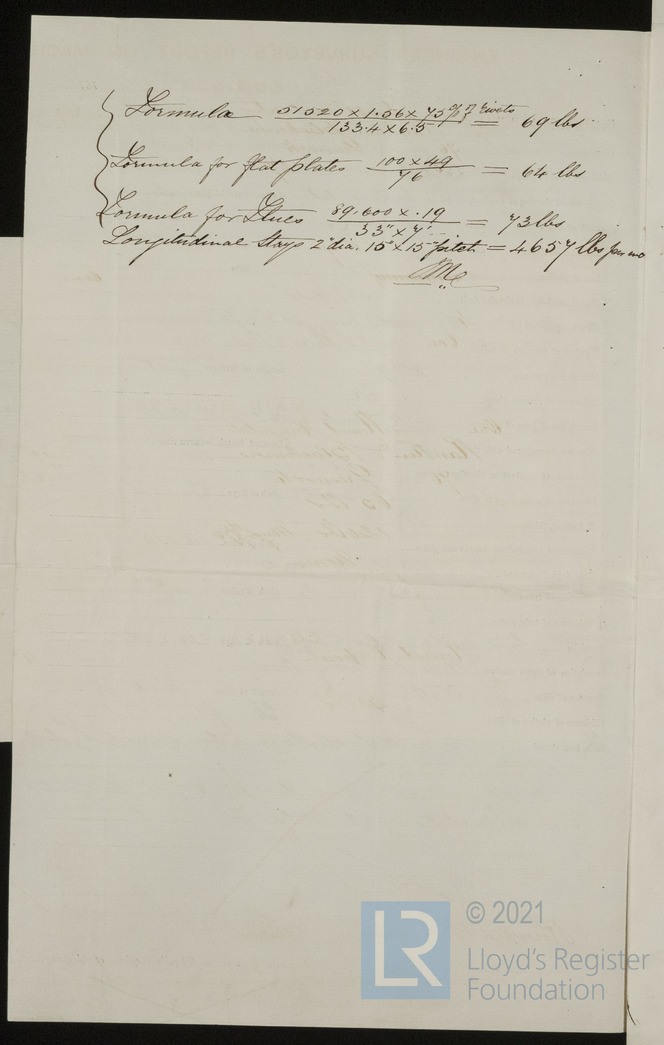 Formula 51520 x 1.06 x 75% of rivets / 133.4 x 6.5 = 69 lbs
Formula for flat plates 100 x 49 / 76 = 64 lbs
Formula for Flues 89.600 x .19 / 33" x 7' = 73 lbs
Longitudinal Stays 2" dia. 15" x 15" pitch = 4657 lbs per
LR © 2021
Lloyd's Register
Foundation